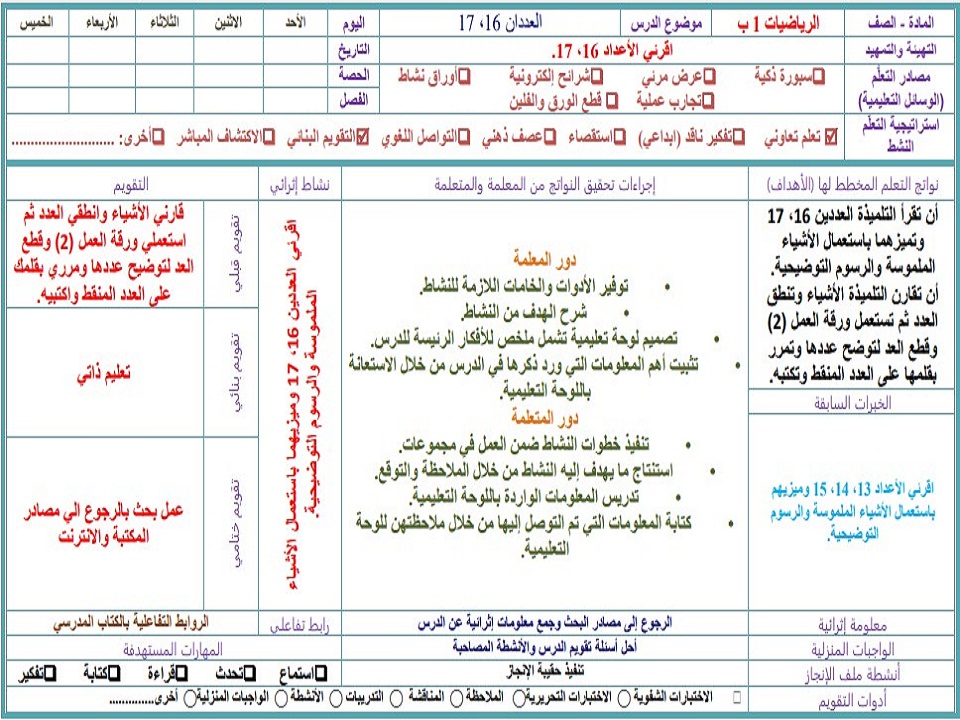 المادة - الصف الرياضيات 1 ب موضوع الدرس العددان 16، 17 اليوم الأحد الاثنين الثلاثاء الأربعاء الخميس
التهيئة والتمهيد اقرئي الأعداد 16، 17. التاريخ
مصادر التعلّم سبورة ذكية عرض مرئي شرائح إلكترونية أوراق نشاط الحصة
(الوسائل التعليمية) تجارب عملية قطع الورق والفلين الفصل
استراتيجية التعلّم النشط تعلم تعاوني تفكير ناقد (ابداعي) استقصاء عصف ذهني التواصل اللغوي التقويم البنائي الاكتشاف المباشر أخرى: ..........................
نواتج التعلم المخطط لها (الأهداف) إجراءات تحقيق النواتج من المعلمة والمتعلمة نشاط إثرائي التقويم
أن تقرأ التلميذة العددين 16، 17
وتميزهما باستعمال الأشياء
الملموسة والرسوم التوضيحية.
أن تقارن التلميذة الأشياء وتنطق
العدد ثم تستعمل ورقة العمل (2)
وقطع العد لتوضح عددها وتمرر
بقلمها على العدد المنقط وتكتبه.
الخبرات السابقة
اقرئي الأعداد 13، 14، 15 وميزيهم
باستعمال الأشياء الملموسة والرسوم
التوضيحية.
دور المعلمة
• توفير الأدوات والخامات اللازمة للنشاط.
• شرح الهدف من النشاط.
• تصميم لوحة تعليمية تشمل ملخص للأفكار الرئيسة للدرس.
• تثبيت أهم المعلومات التي ورد ذكرها في الدرس من خلال الاستعانة
باللوحة التعليمية.
دور المتعلمة
• تنفيذ خطوات النشاط ضمن العمل في مجموعات.
• استنتاج ما يهدف إليه النشاط من خلال الملاحظة والتوقع.
• تدريس المعلومات الواردة باللوحة التعليمية.
• كتابة المعلومات التي تم التوصل إليها من خلال ملاحظتهن للوحة
التعليمية.
اقرئي العددين 16، 17 وميزيهما باستعمال الأشياء
الملموسة والرسوم التوضيحية.
تقويم قبلي
قارني الأشياء وانطقي العدد ثم
استعملي ورقة العمل (2) وقطع
العد لتوضيح عددها ومرري بقلمك
على العدد المنقط واكتبيه.
تقويم بنائي
تعليم ذاتي
تقويم ختامي
عمل بحث بالرجوع الي مصادر
المكتبة والانترنت
معلومة إثرائية الرجوع إلى مصادر البحث وجمع معلومات إثرائية عن الدرس رابط تفاعلي الروابط التفاعلية بالكتاب المدرسي
الواجبات المنزلية أحل أسئلة تقويم الدرس والأنشطة المصاحبة المهارات المستهدفة
أنشطة ملف الإنجاز تنفيذ حقيبة الإنجاز استماع تحدث قراءة كتابة تفكير
أدوات التقويم الاختبارات الشفوية الاختبارات التحريرية الملاحظة المناقشة التدريبات الأنشطة الواجبات المنزلية أخرى..............